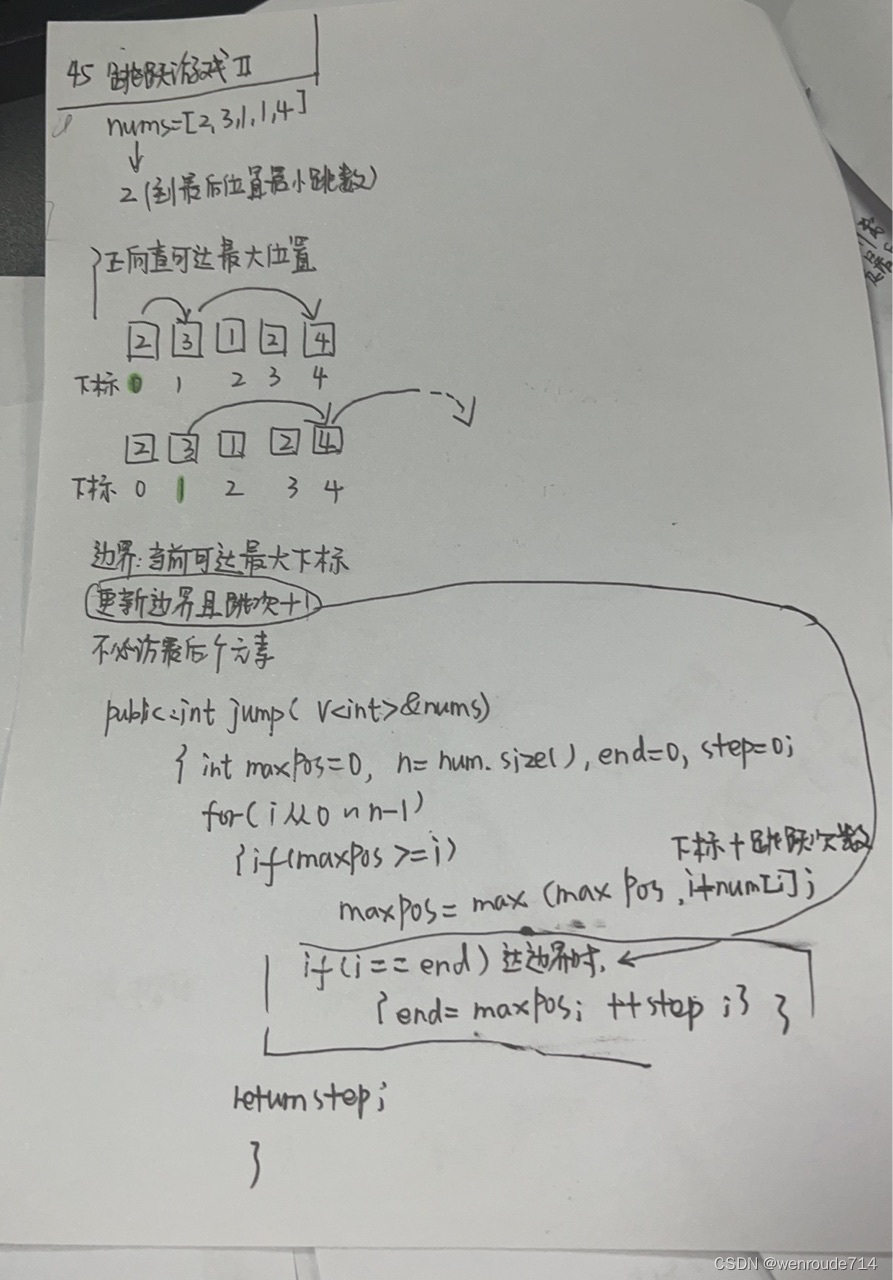 45 跳跃游戏 II
nums=[2,3,1,1,4]
2 (到最后位置最小跳数)
正向查可达最大位置
2 3 1 2 4
下标 0 1 2 3 4
2 3 1 2 4
下标 0 1 2 3 4
边界:当前可达最大下标
更新边界且跳次+1
不必访最后个元素
public:int jump( V<int>&nums)
{ int maxPos=0, n= num.size(), end=0, step=0;
for( i 从 0 ~ n-1)
{if(maxPos >=i)
下标+跳跃次数
maxPos= max (max Pos ,i+num[i];
if(i== end) 达边界时,
{end= maxPos; ++step ;} }
return step;
}
CSDN @wenroude714